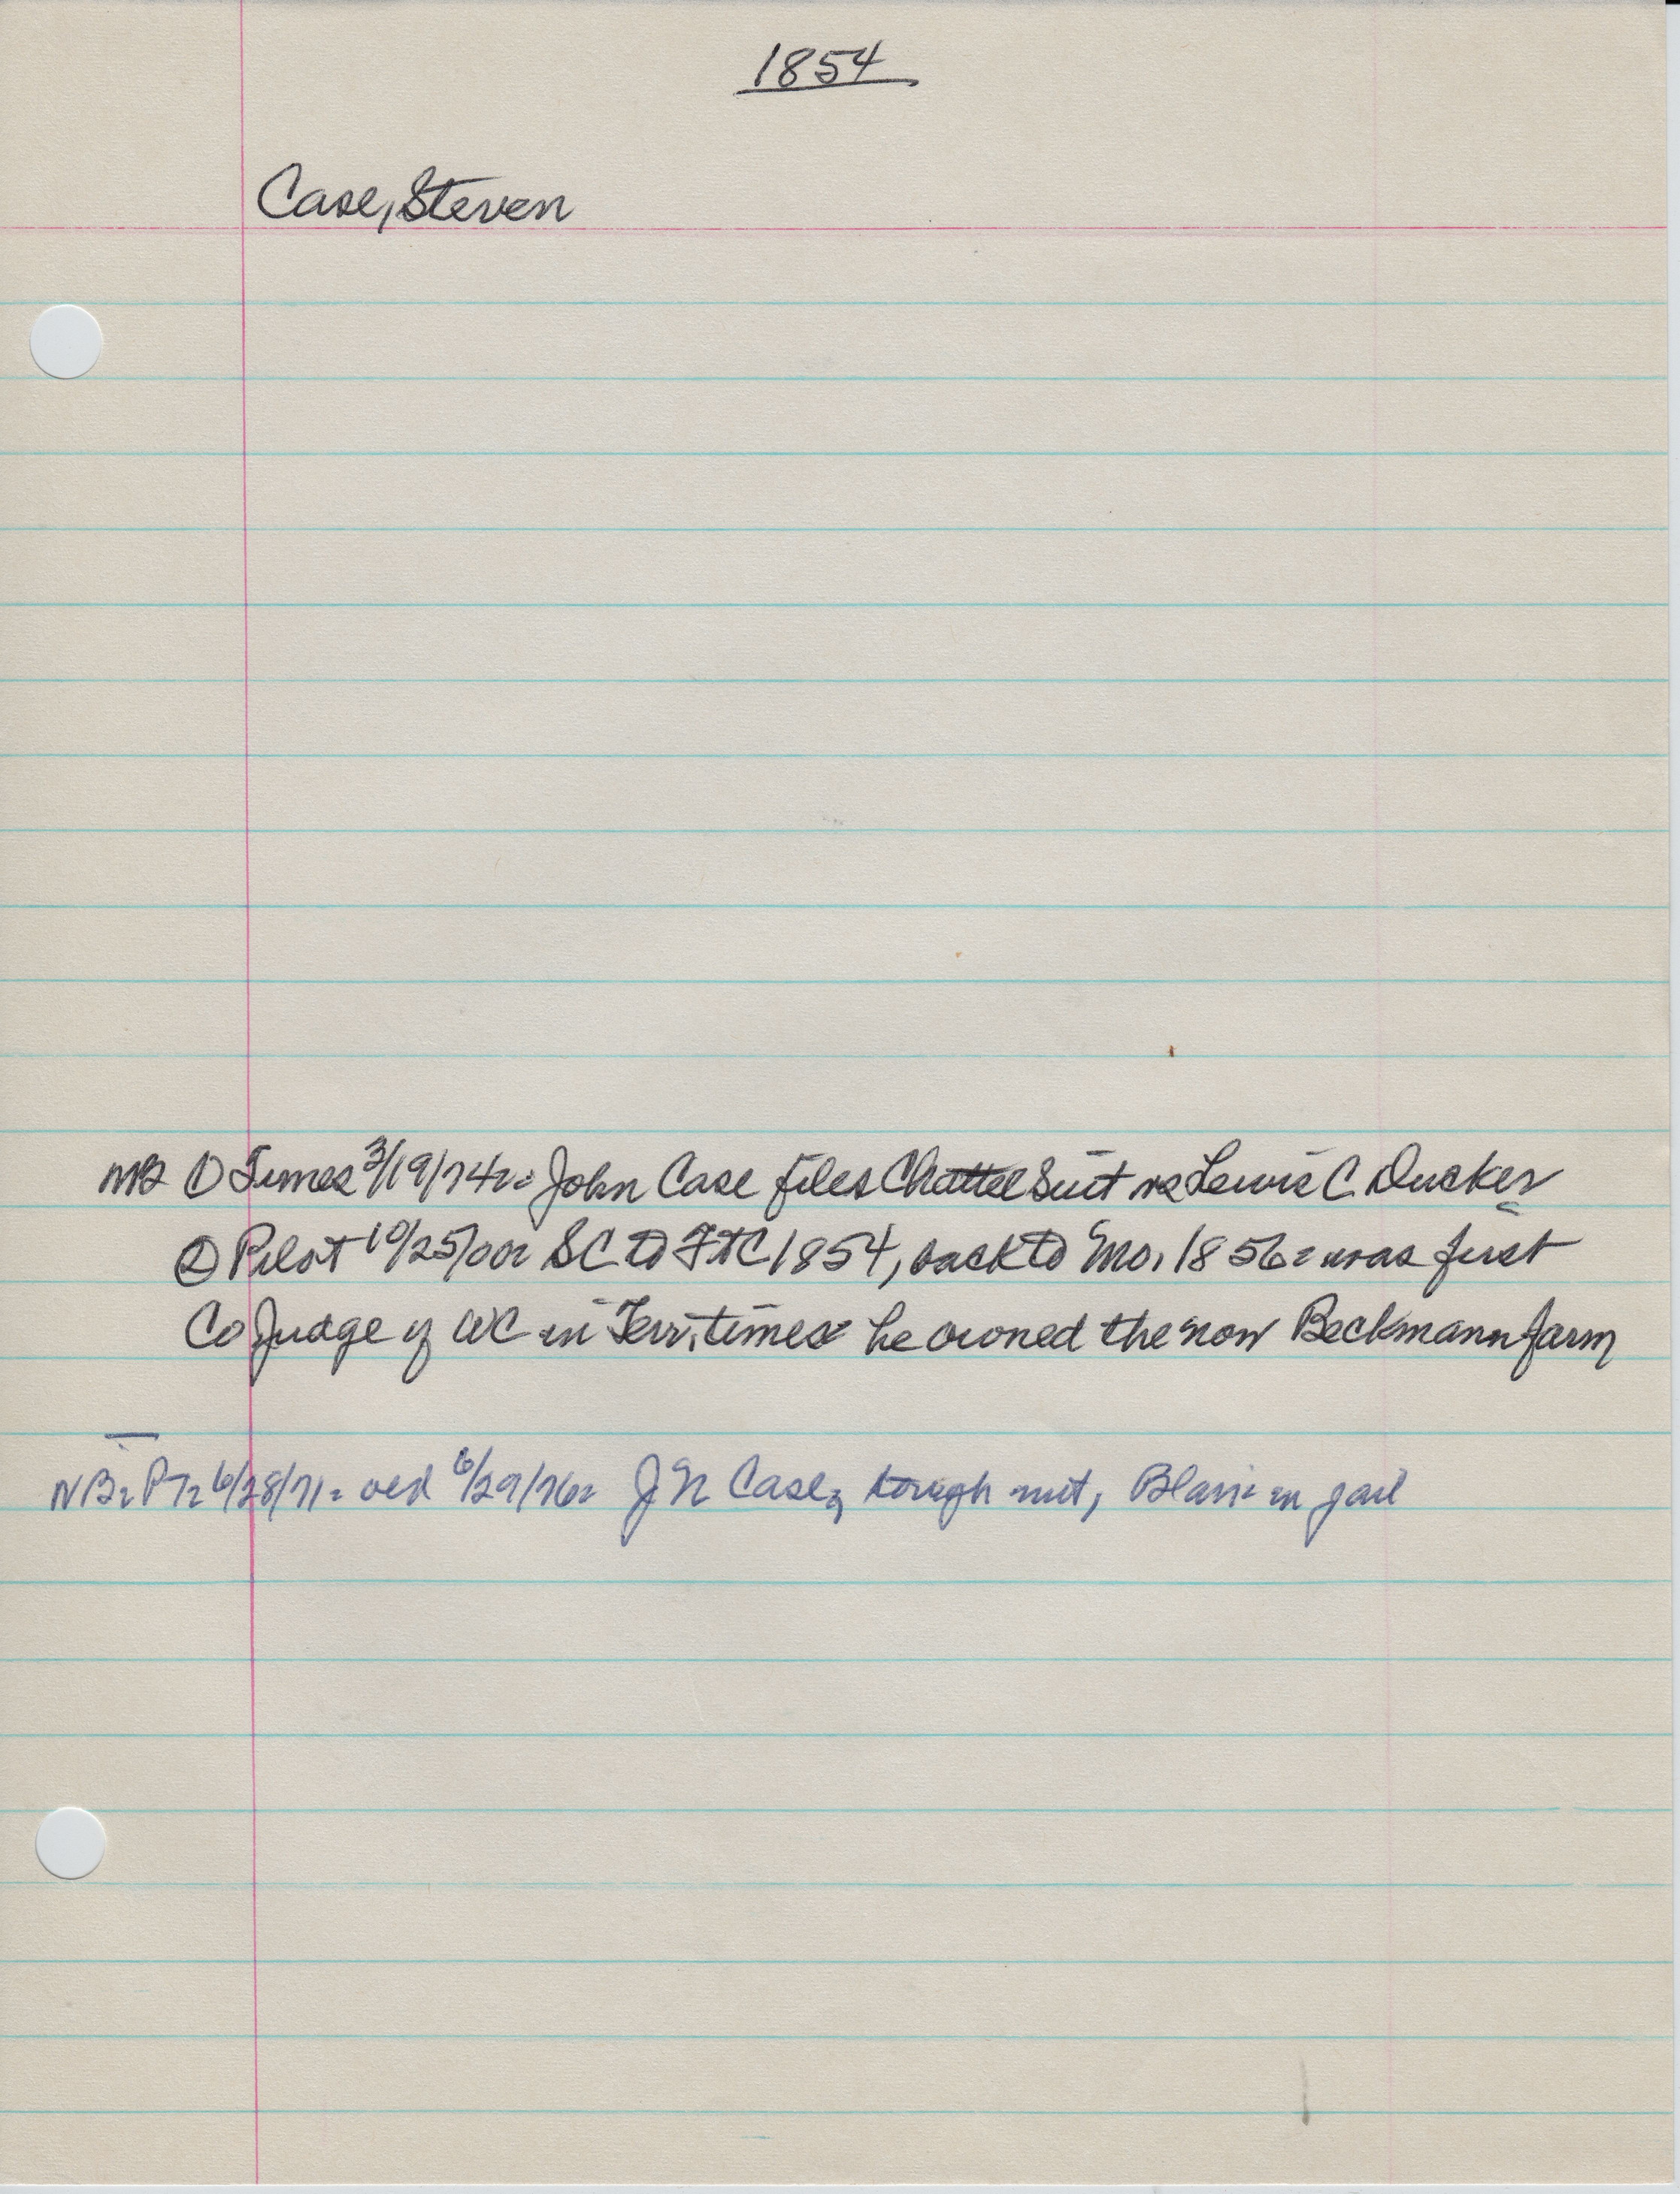 1854
Case, Steven
NB ① Times 3/19/74 = John Case files Chattel Suit vs Lewis C. Dusker
② Pilot 10/25/00 = SC to FTC 1854, back to Mo. 1856 = was first
Co Judge of WC in Terr. times = he owned the now Beckmann farm
NB = 6/28/71 = 6/29/76 = J N Case, tough nut, Blair in jail